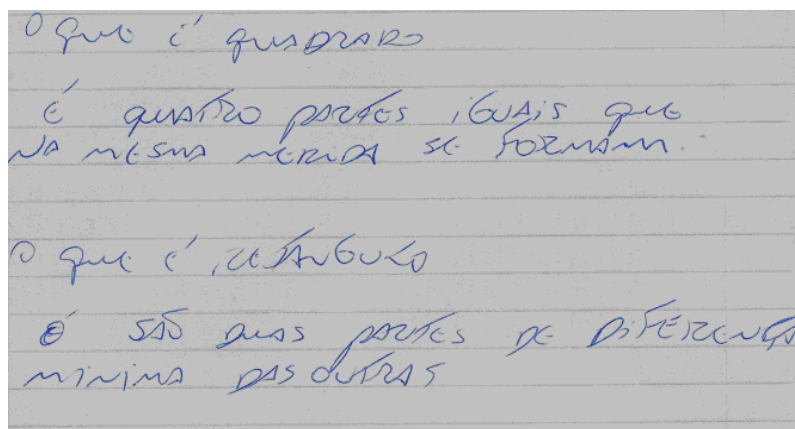 O que é quadrado
É quatro partes iguais que
na mesma medida se formam.
O que é retângulo
É são duas partes de diferença
minima das outras